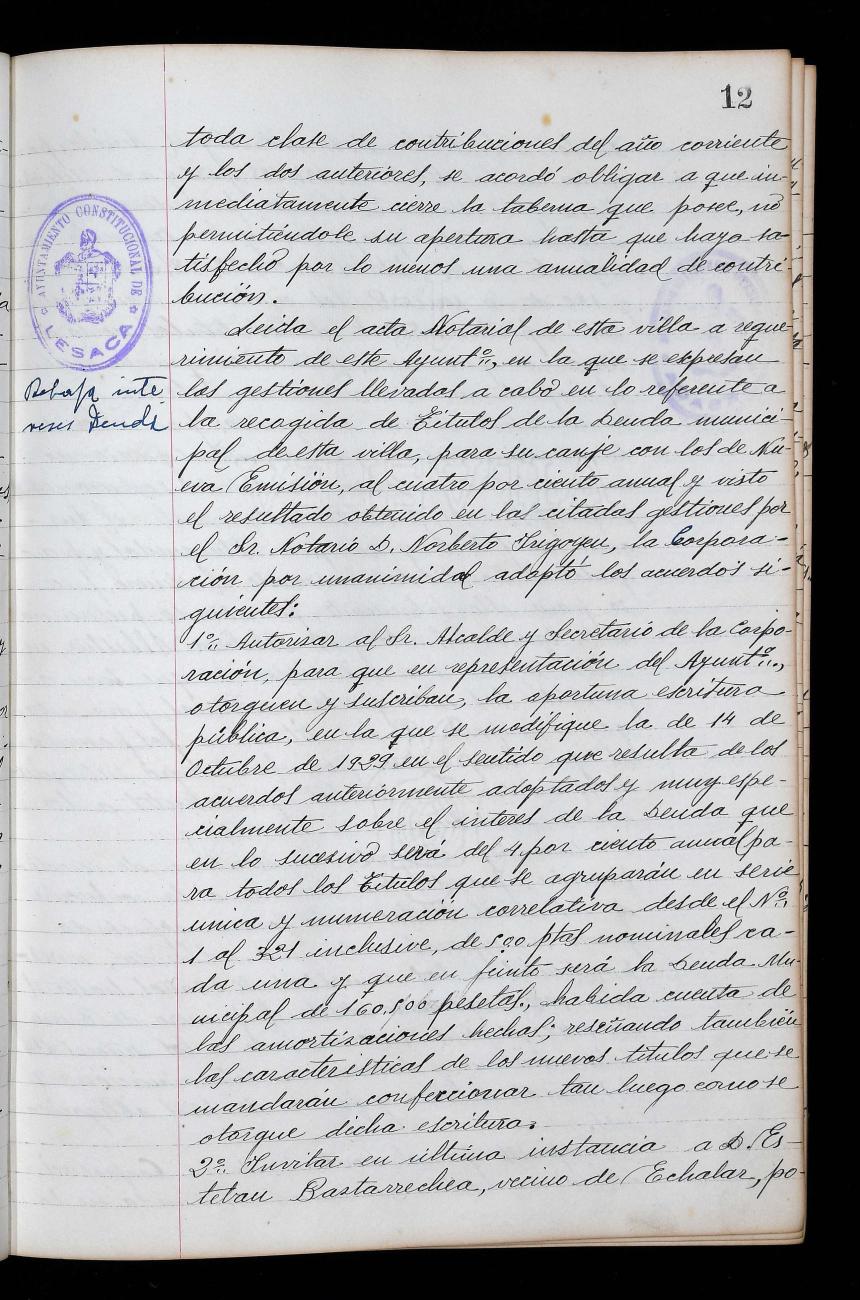 12
toda clase de contribuciones del año corriente
y los dos anteriores, se acordó obligar a que in-
mediatamente cierre la taberna que posee, no
permitiéndole su apertura hasta que haya sa-
tisfecho por lo menos una anualidad de contri-
bución.
AYUNTAMIENTO CONSTITUCIONAL DE
LESACA
Leida el acta Notarial de esta villa a reque-
rimiento de este Ayuntº., en la que se expresan
las gestiones llevadas a cabo en lo referente a
la recogida de Titulos de la Deuda munici-
pal de esta villa, para su canje con los de Nu-
eva Emisión, al cuatro por ciento anual y visto
el resultado obtenido en las citadas gestiones por
el Sr. Notario D. Norberto Irigoyen, la Corpora-
ción por unanimidad adoptó los acuerdos si-
guientes:
Rebaja inte
reses Deuda
1º. Autorizar al Sr. Alcalde y Secretario de la Corpo-
ración, para que en representación del Ayuntº.,
otorguen y suscriban, la oportuna escritura
pública, en la que se modifique la de 14 de
Octubre de 1929 en el sentido que resulta de los
acuerdos anteriormente adoptados y muy espe-
cialmente sobre el interes de la Deuda que
en lo sucesivo será del 4 por ciento anual pa-
ra todos los Titulos que se agruparán en serie
unica y numeración correlativa desde el Nº.
1 al 321 inclusive, de 500 ptas nominales ca-
da una y que en junto será la Deuda Mu-
nicipal de 160.500 pesetas., habida cuenta de
las amortizaciones hechas; reseñando también
las caracteristicas de los nuevos titulos que se
mandarán confeccionar tan luego como se
otorgue dicha escritura.
2º. Invitar en última instancia a D. Es-
teban Bastarrechea, vecino de Echalar, po-